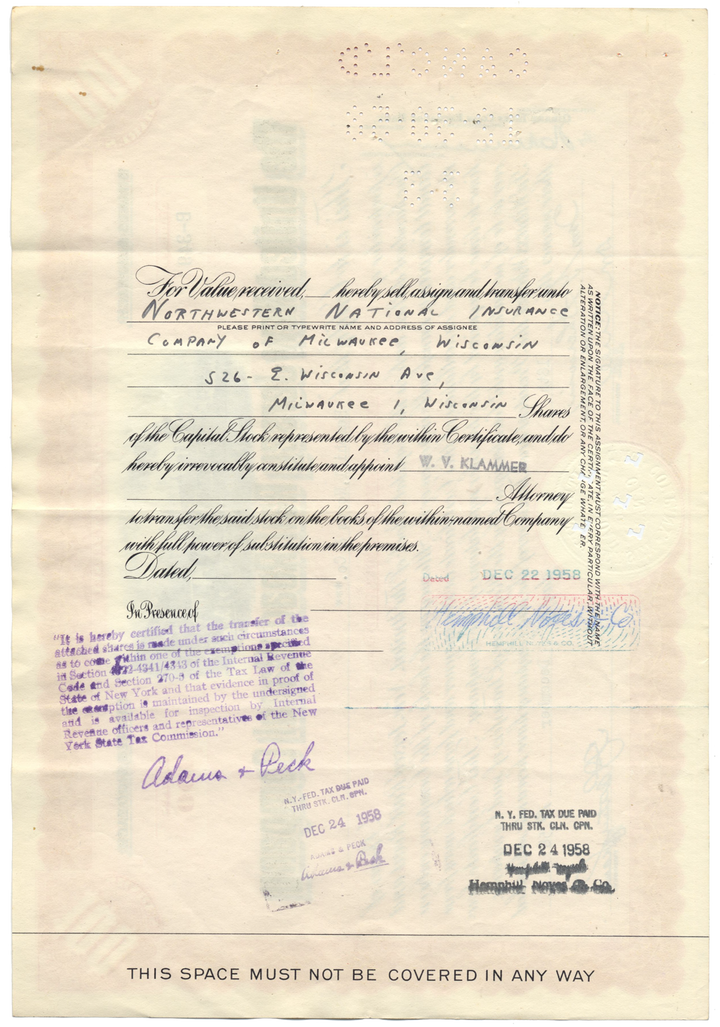 For Value received, hereby sell, assign and transfer unto
NORTHWESTERN NATIONAL INSURANCE
PLEASE PRINT OR TYPEWRITE NAME AND ADDRESS OF ASSIGNEE
COMPANY OF MILWAUKEE, WISCONSIN
526- E. WISCONSIN AVE,
MILWAUKEE 1, WISCONSIN Shares
of the Capital Stock represented by the within Certificate, and do
hereby irrevocably constitute and appoint W. V. KLAMMER
Attorney
to transfer the said stock on the books of the within-named Company
with full power of substitution in the premises.
Dated,
Dated DEC 22 1958
In Presence of
Hemphill Noyes & Co.
HEMPHILL, NOYES & CO.
NOTICE: THE SIGNATURE TO THIS ASSIGNMENT MUST CORRESPOND WITH THE NAME
AS WRITTEN UPON THE FACE OF THE CERTIFICATE, IN EVERY PARTICULAR, WITHOUT
ALTERATION OR ENLARGEMENT, OR ANY CHANGE WHATEVER.
"It is hereby certified that the transfer of the
attached shares is made under such circumstances
as to come within one of the exemptions specified
in Section 4341/4343 of the Internal Revenue
Code and Section 270-c of the Tax Law of the
State of New York and that evidence in proof of
the exemption is maintained by the undersigned
and is available for inspection by Internal
Revenue officers and representatives of the New
York State Tax Commission."
Adams & Peck
N.Y.-FED. TAX DUE PAID
THRU STK. CLN. CPN.
DEC 24 1958
ADAMS & PECK
Adams & Peck
N. Y. FED. TAX DUE PAID
THRU STK. CLN. CPN.
DEC 24 1958
Hemphill Noyes & Co.
THIS SPACE MUST NOT BE COVERED IN ANY WAY